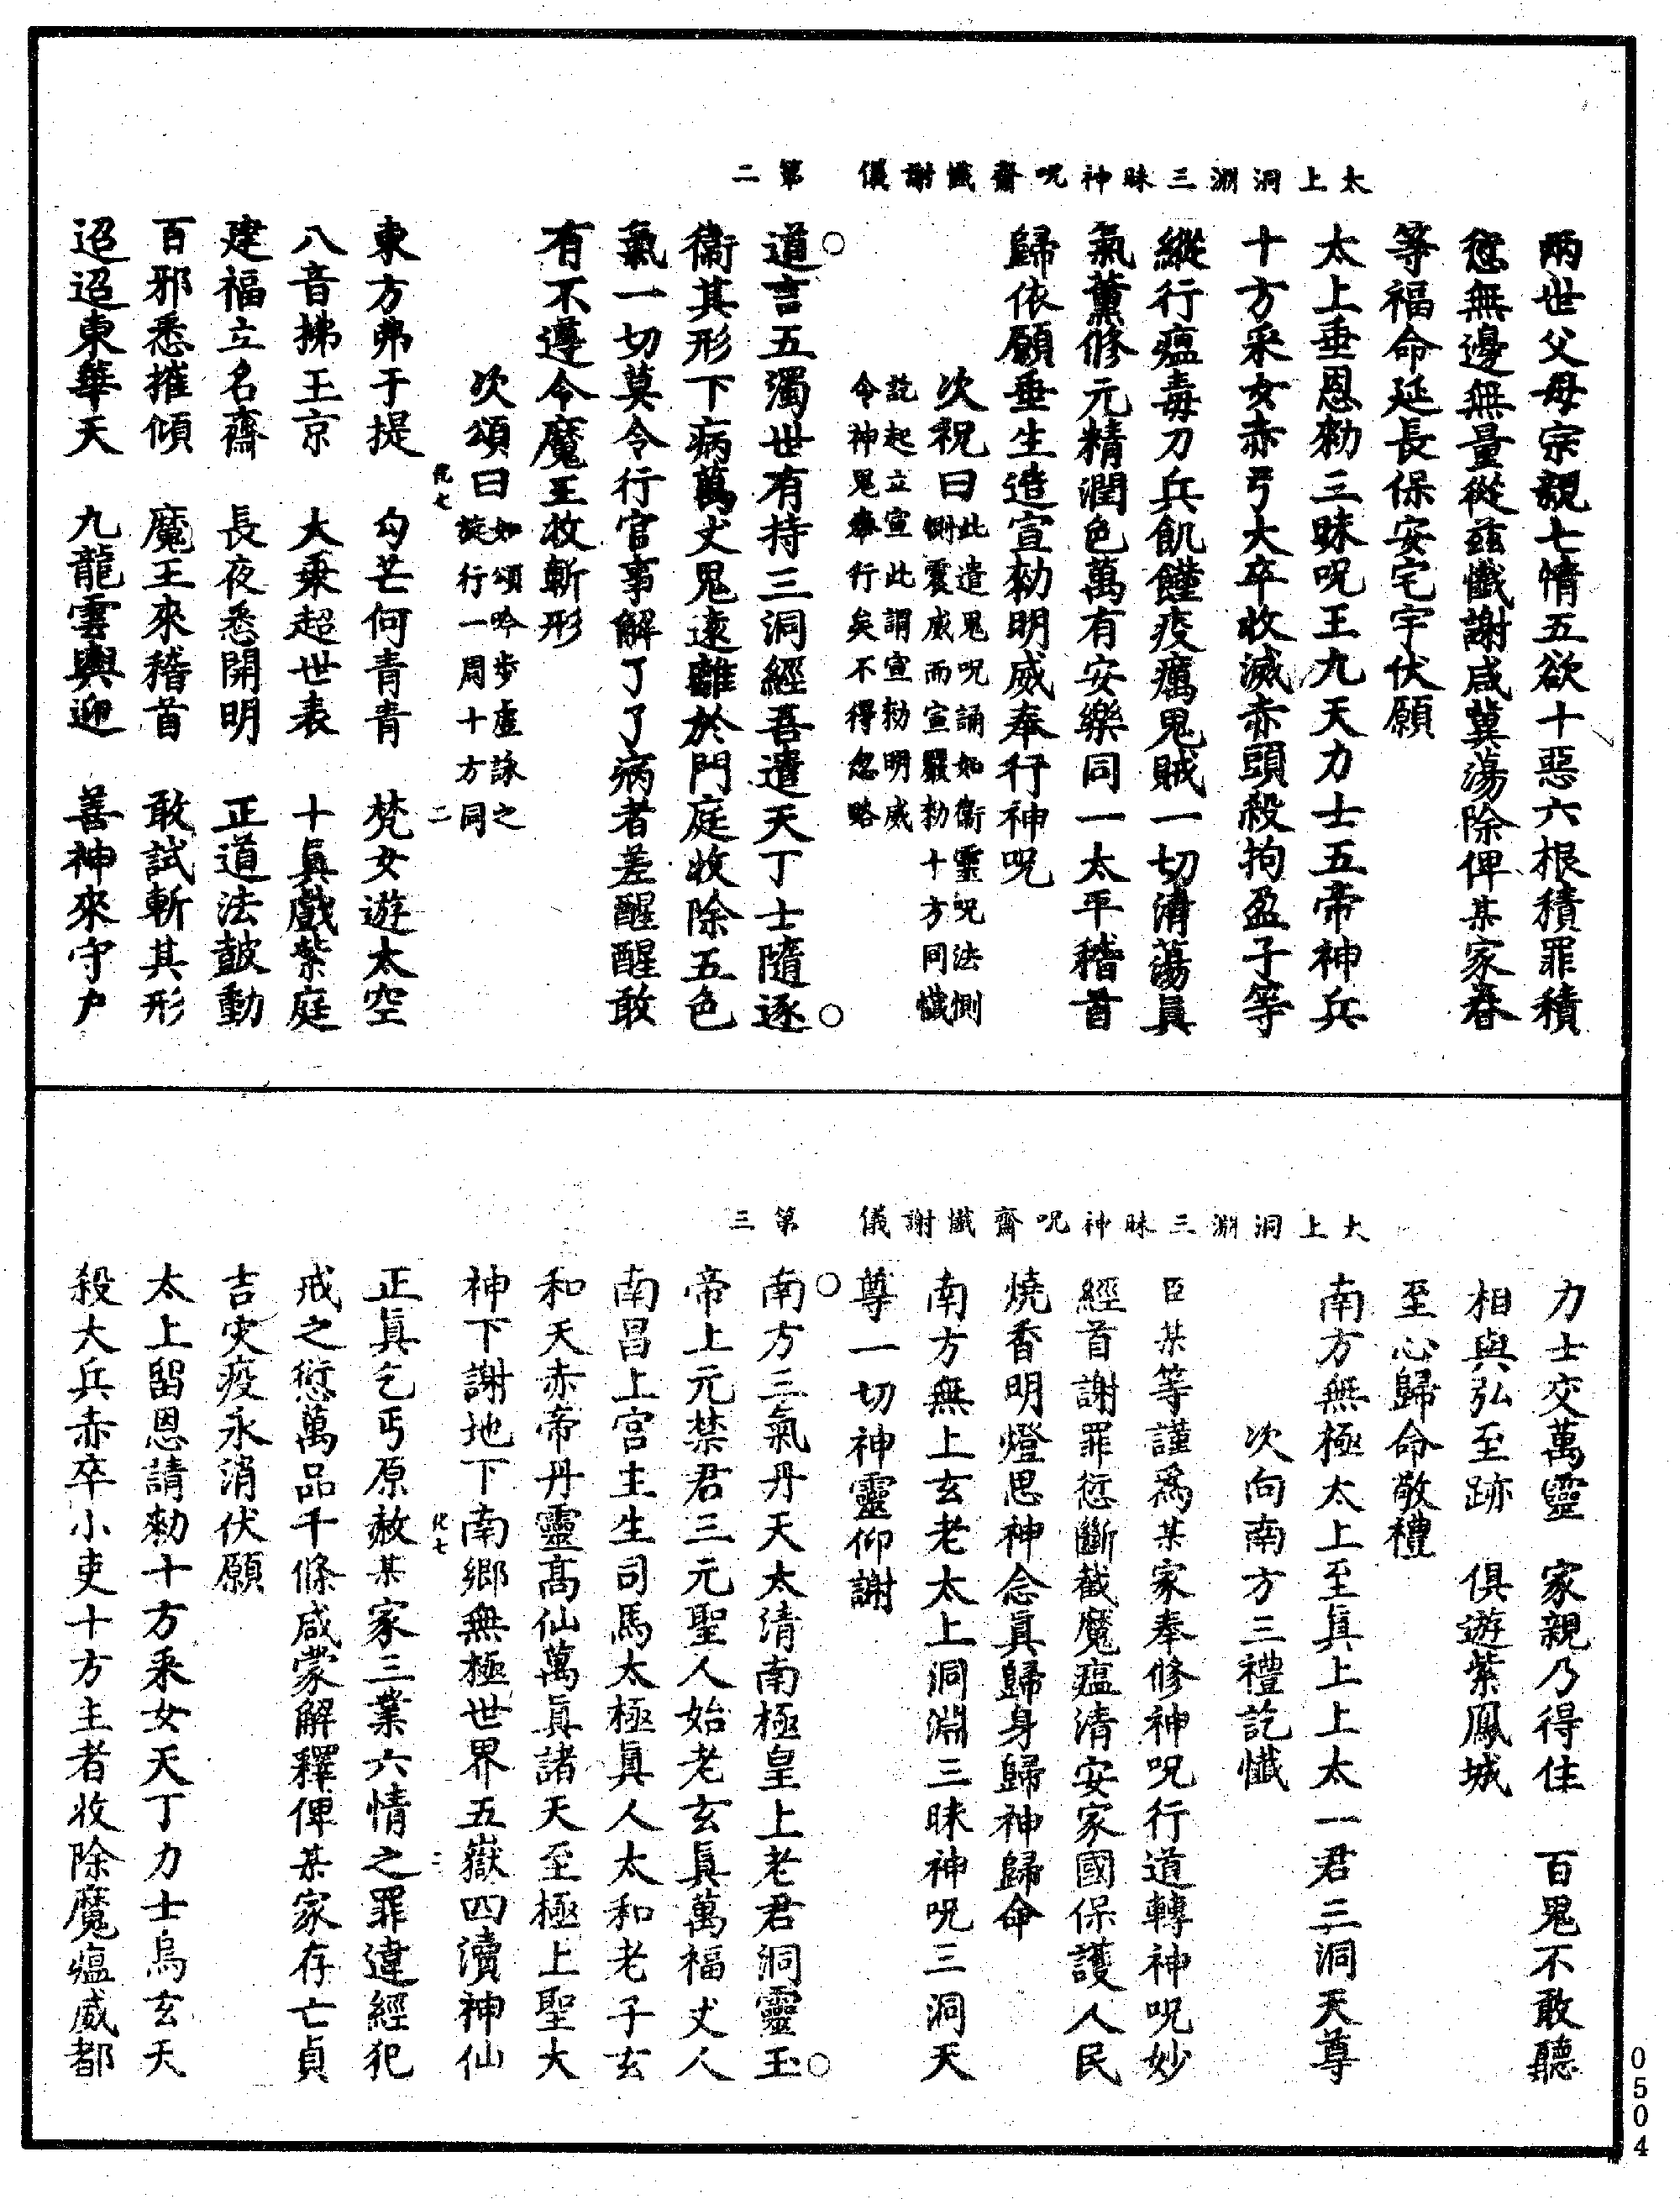 太上洞淵三昧神呪齋懺謝儀　第二
兩世父母宗親七情五欲十惡六根積罪積
愆無邊無量從茲懺謝咸冀蕩除俾某家眷
等福命延長保安宅宇伏願
太上垂恩勑三昧呪王九天力士五帝神兵
十方采女赤弓大卒收滅赤頭殺拘盈子等
縱行瘟毒刀兵飢饉疫癘鬼賊一切清蕩眞
氣薰修元精潤色萬有安樂同一太平稽首
歸依願垂生造宣勑明威奉行神呪
次祝曰此遣鬼呪誦如衞靈呪法惻
惻震威而宣嚴勑十方同懺
訖起立宣此謂宣勑明威
令神鬼奉行矣不得忽略
道言五濁世有持三洞經吾遣天丁士隨逐
衞其形下病萬丈鬼遠離於門庭收除五色
氣一切莫令行官事解了了病者差醒醒敢
有不遵令魔王收斬形
次頌曰如頌吟步虛詠之
旋行一周十方同
東方弗于提　勾芒何青青　梵女遊太空
八音拂王京　大乘超世表　十眞戲紫庭
建福立名齋　長夜悉開明　正道法鼓動
百邪悉摧傾　魔王來稽首　敢試斬其形
迢迢東華天　九龍雲輿迎　善神來守戶
太上洞淵三昧神呪齋懺謝儀　第三
力士交萬靈　家親乃得住　百鬼不敢聽
相與弘至跡　俱遊紫鳳城
至心歸命敬禮
南方無極太上至眞上上太一君三洞天尊
次向南方三禮訖懺
臣某等謹爲某家奉修神呪行道轉神呪妙
經首謝罪愆斷截魔瘟清安家國保護人民
燒香明燈思神念眞歸身歸神歸命
南方無上玄老太上洞淵三昧神呪三洞天
尊一切神靈仰謝
南方三氣丹天太清南極皇上老君洞靈玉
帝上元禁君三元聖人始老玄眞萬福丈人
南昌上宮主生司馬太極眞人太和老子玄
和天赤帝丹靈高仙萬眞諸天至極上聖大
神下謝地下南鄉無極世界五嶽四瀆神仙
正眞乞丐原赦某家三業六情之罪違經犯
戒之愆萬品千條咸蒙解釋俾某家存亡貞
吉灾疫永消伏願
太上留恩請勑十方采女天丁力士烏玄天
殺大兵赤卒小吏十方主者收除魔瘟威都
0504